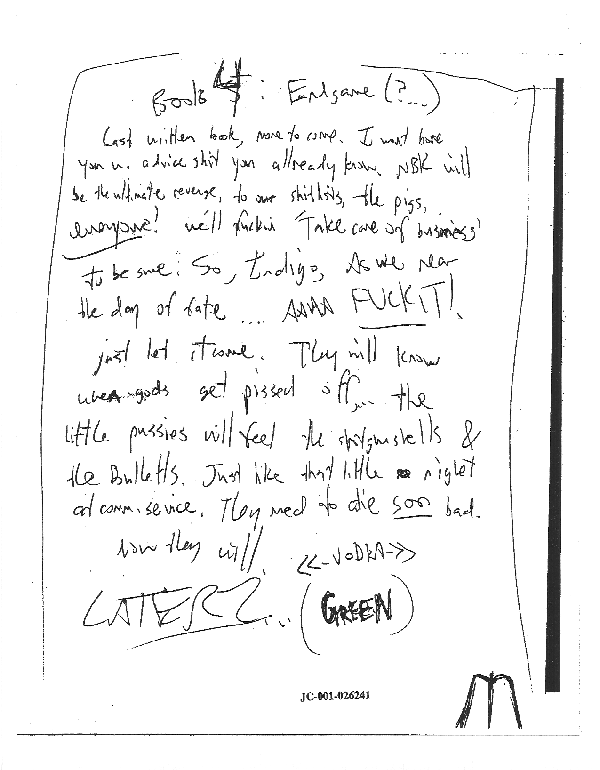 Book 4 : Endgame (?...)
Last written book, more to come. I must have
you w. advice shit you allready know. NBK will
be the ultimate revenge, to our shitlists, the pigs,
everyone! we'll fuckin 'Take care of business'
to be sure! So, Indigo, As we near
the day of fate .... AAAA FUCK IT!
just let it come. They will know
when gods get pissed off... the
little pussies will feel the shotgun shells &
the Bulletts. Just like that little night
at comm. service. They need to die soo bad.
how they will.
<<-VoDKA->>
LATERZ... (GREEN)
JC-001-026241